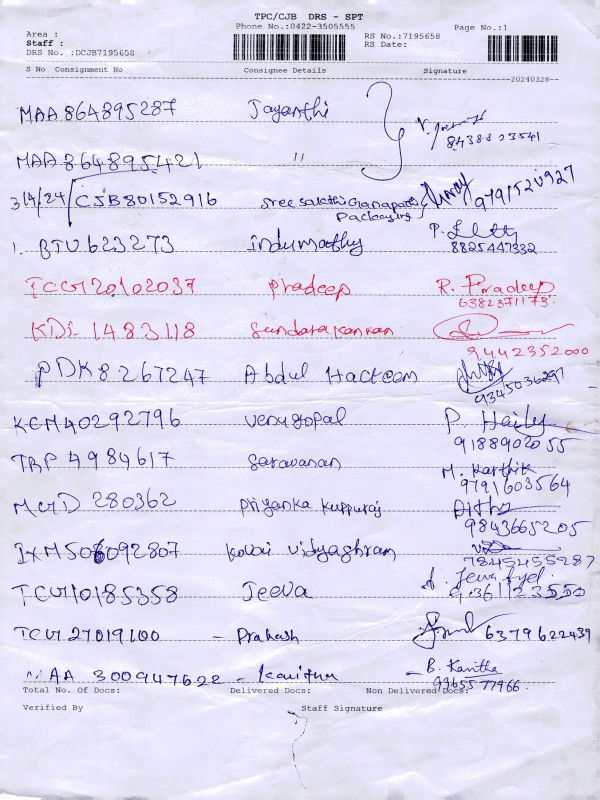 TPC/CJB DRS - SPT
Phone No.:0422-3505555 Page No.:1
Area :
Staff : RS No.:7195658
DRS No. :DCJB7195658 RS Date:
S No Consignment No Consignee Details Signature
20240328
MAA 864895287 Jayanthi
8438823541
MAA 864895421 "
3/4/24 CJB80152916 Sree Sakthi Ganapathi Packaging 9791520927
1. BTU 623273 indumathy
8825447332
20102037 Pradeep R. Pradeep
6382371173.
1483118 Sundarakannan
9442352000
PDK8267247 Abdul Hackeem
9345036297
KCM40292796 venugopal P.
9188902055
TRP 4984617 Saravanan M. Karthik
9791603564
280362 Priyanka kuppuraj
9843665205
IXM506092807 Kovai vidyashram
7845455287
10185358 Jeeva
27019100 - Prakash 6379622439
MAA 300947622 - Kavitha - B. Kavitha
9965577966.
Total No. Of Docs: Delivered Docs: Non Delivered Docs:
Verified By Staff Signature